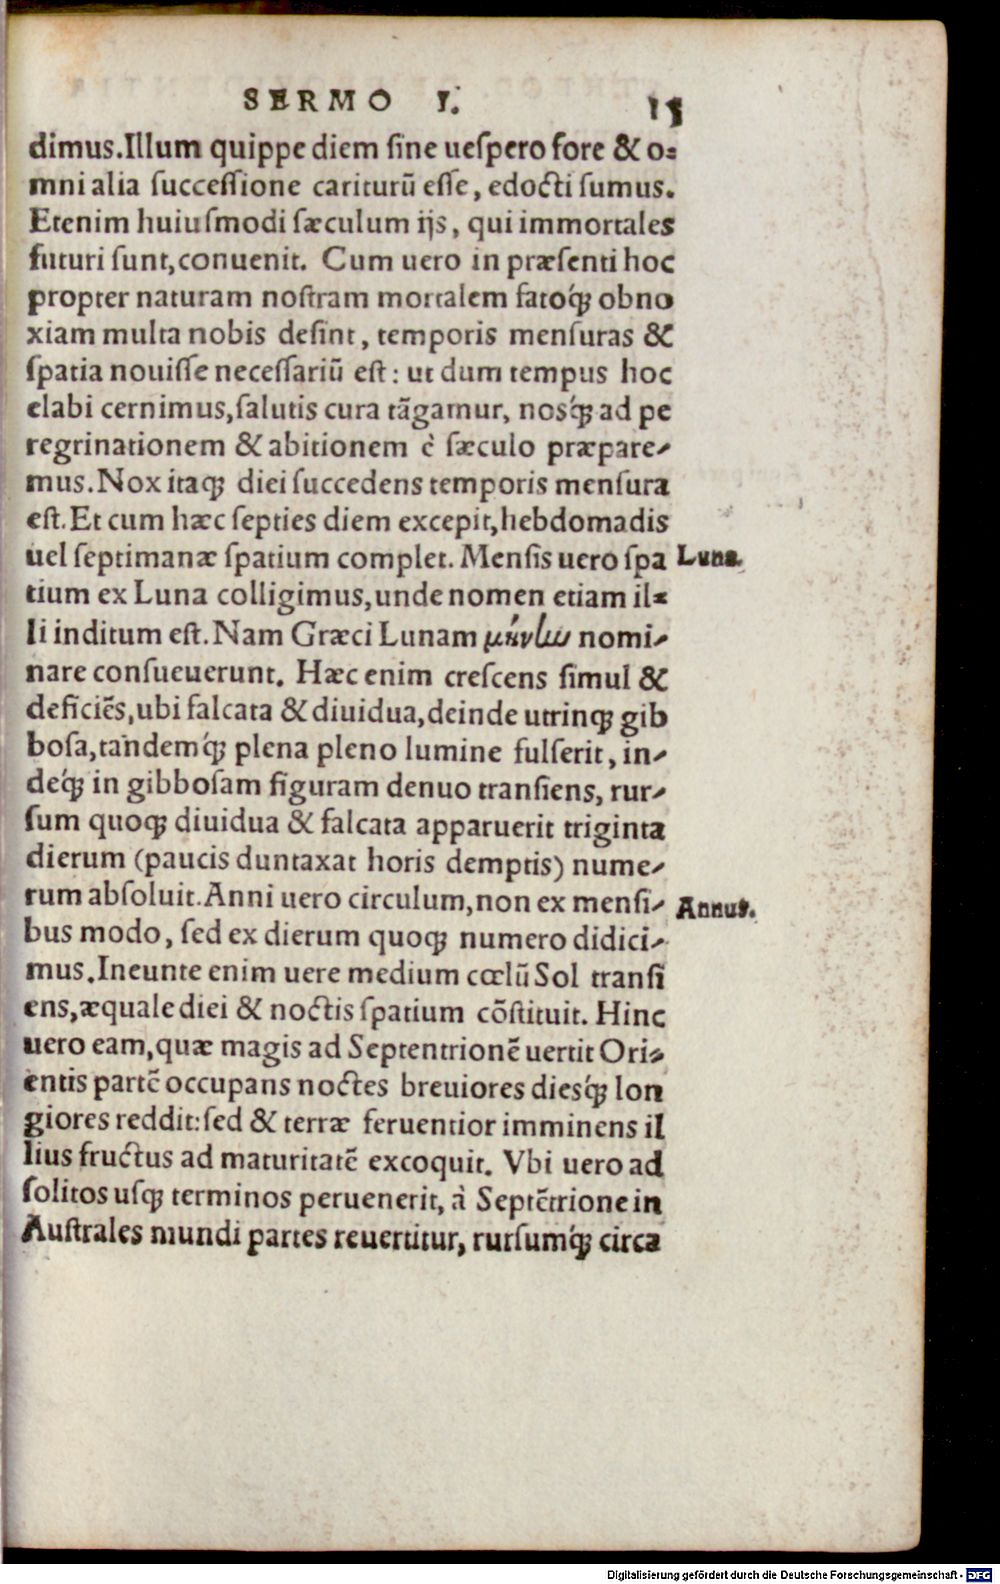 SERMO I. 15
dimus.Illum quippe diem ſine ueſpero fore & o⸗
mni alia ſucceſſione cariturū eſſe, edocti ſumus.
Etenim huiuſmodi ſæculum ijs, qui immortales
futuri ſunt,conuenit. Cum uero in præſenti hoc
propter naturam noſtram mortalem fatoq́ꝫ obno
xiam multa nobis deſint, temporis menſuras &
ſpatia nouiſſe neceſſariū eſt: ut dum tempus hoc
elabi cernimus,ſalutis cura tāgamur, nosq́ꝫ ad pe
regrinationem & abitionem è ſæculo præpare-
mus.Nox itaqꝫ diei ſuccedens temporis menſura
eſt.Et cum hæc ſepties diem excepit,hebdomadis
uel ſeptimanæ ſpatium complet. Menſis uero ſpa
Luna.
tium ex Luna colligimus,unde nomen etiam il⸗
li inditum eſt.Nam Græci Lunam μήνην nomi-
nare conſueuerunt. Hæc enim creſcens ſimul &
deficiēs,ubi falcata & diuidua,deinde utrinqꝫ gib
boſa,tandemq́ꝫ plena pleno lumine fulſerit, in-
deq́ꝫ in gibboſam figuram denuo tranſiens, rur-
ſum quoqꝫ diuidua & falcata apparuerit triginta
dierum (paucis duntaxat horis demptis) nume-
rum abſoluit.Anni uero circulum,non ex menſi-
Annus.
bus modo, ſed ex dierum quoqꝫ numero didici-
mus.Ineunte enim uere medium cœlū Sol tranſi
ens,æquale diei & noctis ſpatium cōſtituit. Hinc
uero eam,quæ magis ad Septentrionē uertit Ori⸗
entis partē occupans noctes breuiores diesq́ꝫ lon
giores reddit:ſed & terræ feruentior imminens il
lius fructus ad maturitatē excoquit. Vbi uero ad
ſolitos uſqꝫ terminos peruenerit, à Septētrione in
Auſtrales mundi partes reuertitur, rurſumq́ꝫ circa
Digitalisierung gefördert durch die Deutsche Forschungsgemeinschaft - DFG